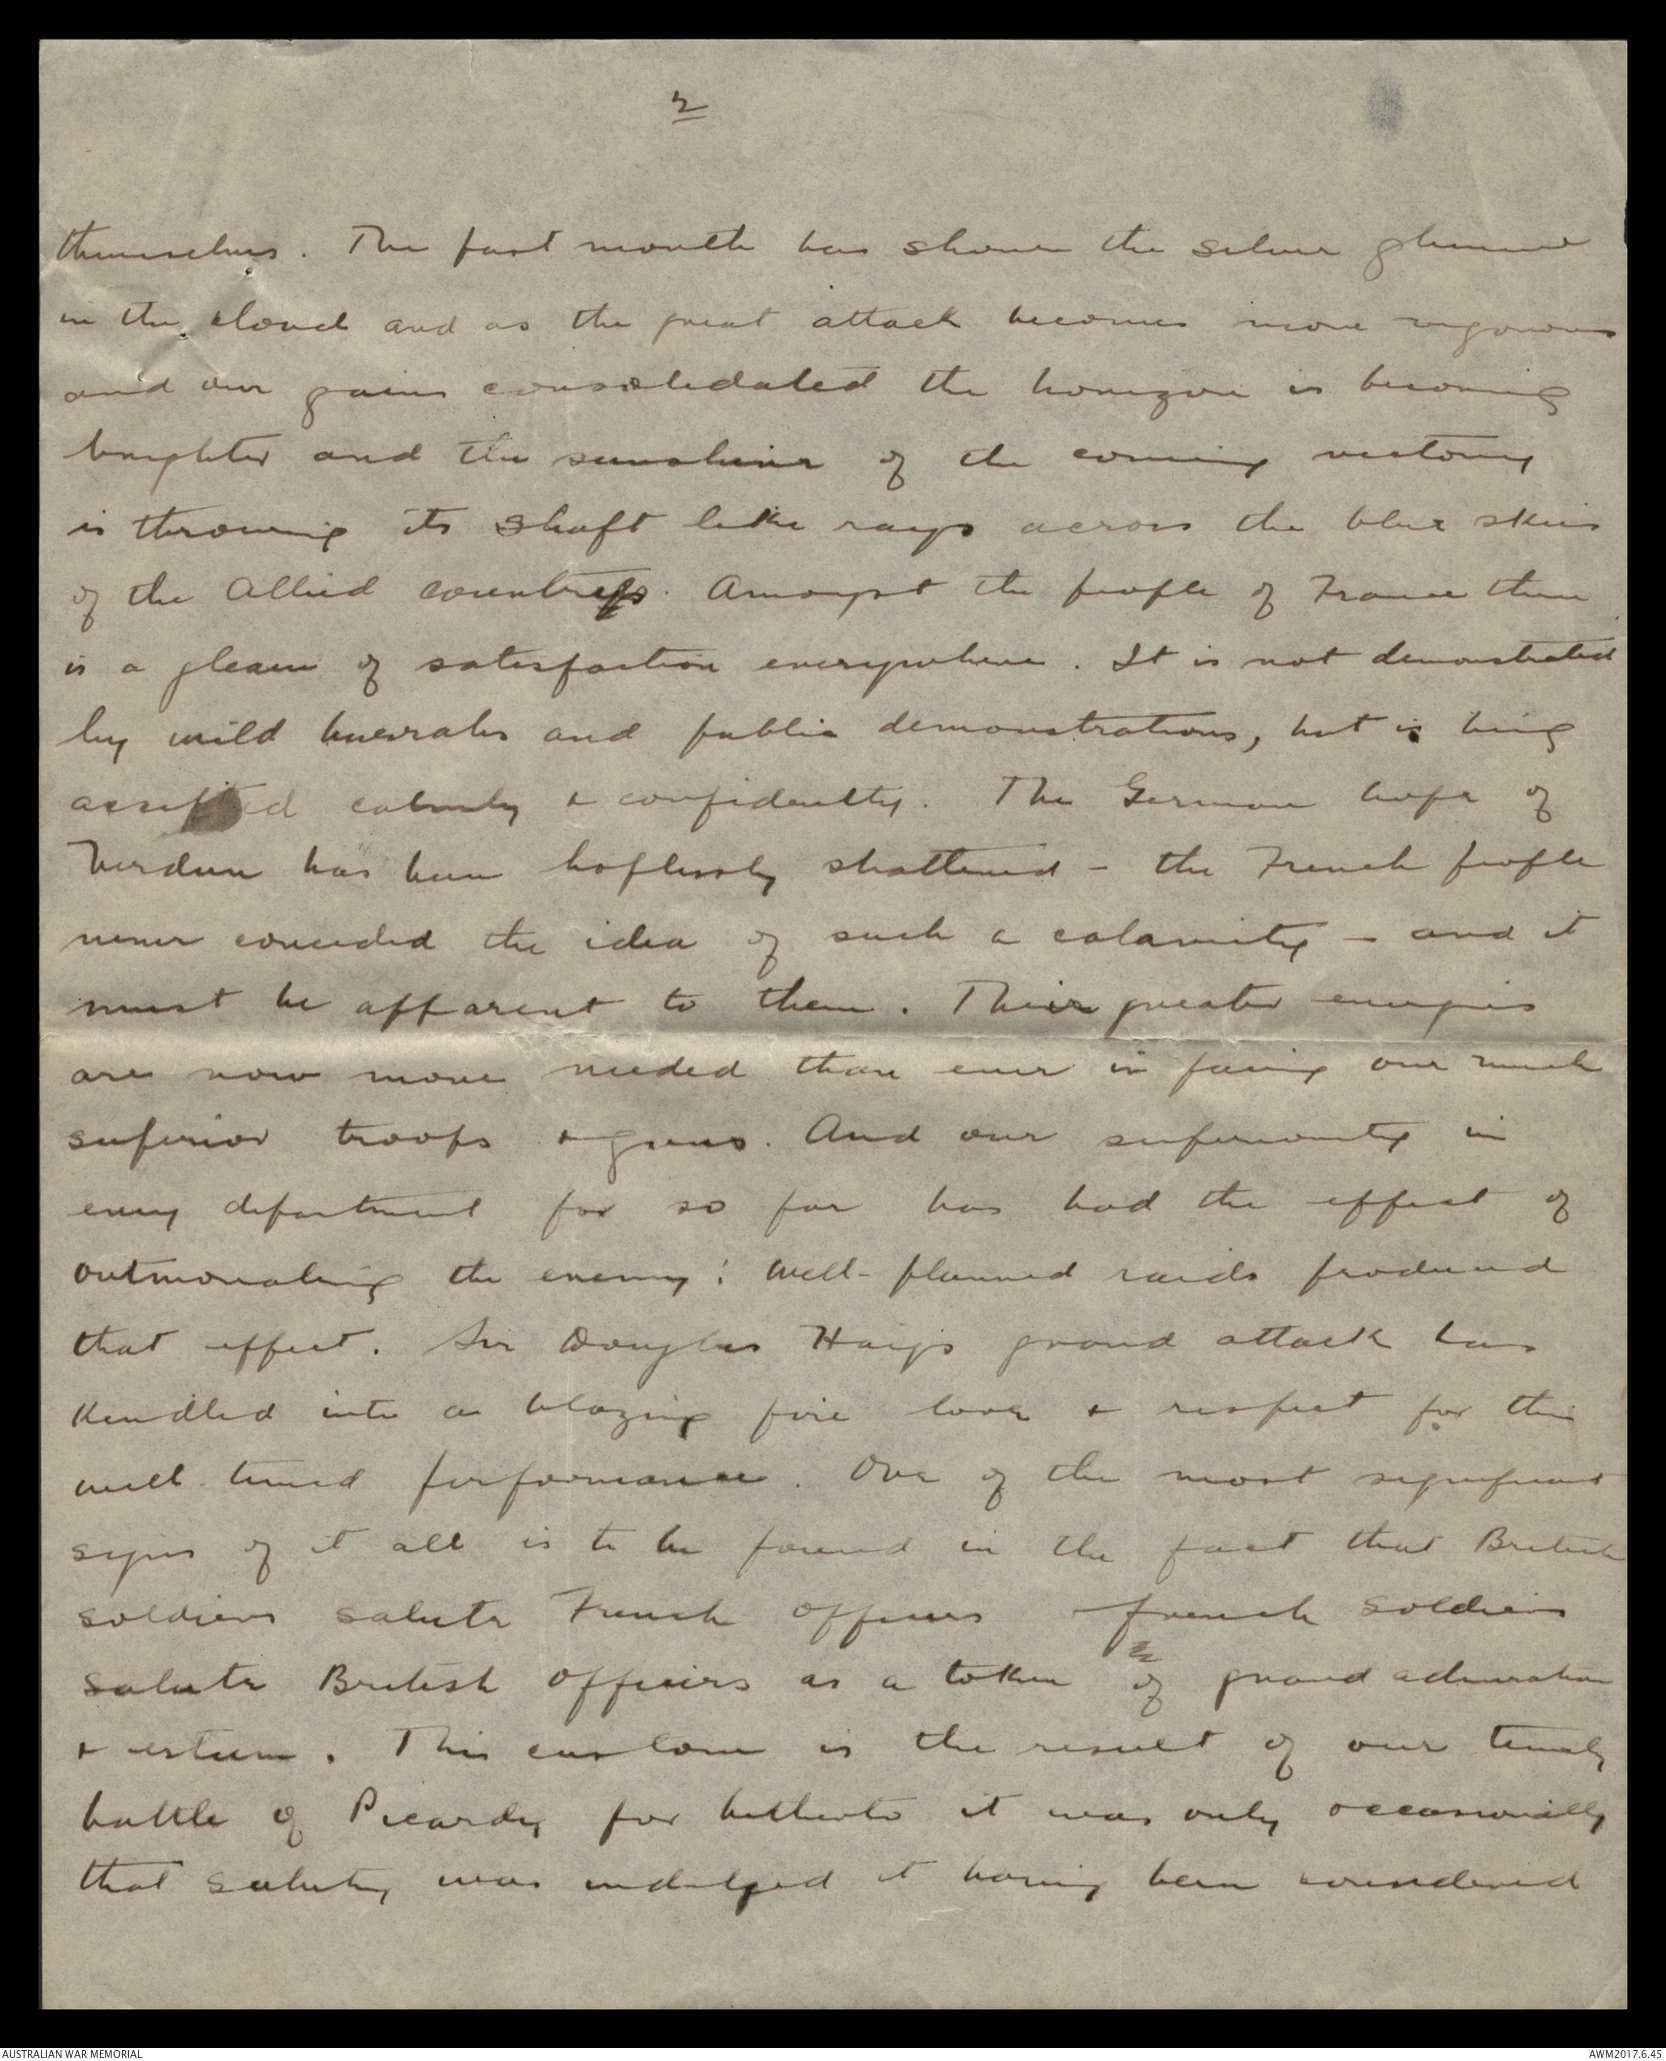 2
themselves. The past month has shown the silver glimmer
in the cloud and as the great attack becomes more vigorous
and our gains consolidated the horizon is becoming
brighter and the sunshine of the coming victory
is throwing its shaft like rays across the blue skies
of the Allied countries. Amongst the people of France there
is a gleam of satisfaction everywhere. It is not demonstrated
by wild hurrahs and public demonstrations, but is being
accepted calmly & confidently. The German hope of
Verdun has been hoplessly shattered - the French people
never conceded the idea of such a calamity - and it
must be apparent to them. Their greater energies
are now more needed than ever in facing our much
superior troops & guns. And our superiority in
every department for so far has had the effect of
outmoraling the enemy: well-planned raids produced
that effect. Sir Douglas Haigs grand attack has
kindled into a blazing fire love & respect for this
well timed performance. One of the most significant
signs of it all is to be found in the fact that British
soldiers salute French officers french soldiers
salute British officers as a token of grand admiration
& esteem. This custom is the result of our timely
battle of Picardy for hitherto it was only occasionally
that saluting was indulged it having been considered
AUSTRALIAN WAR MEMORIAL
AWM2017.6.45